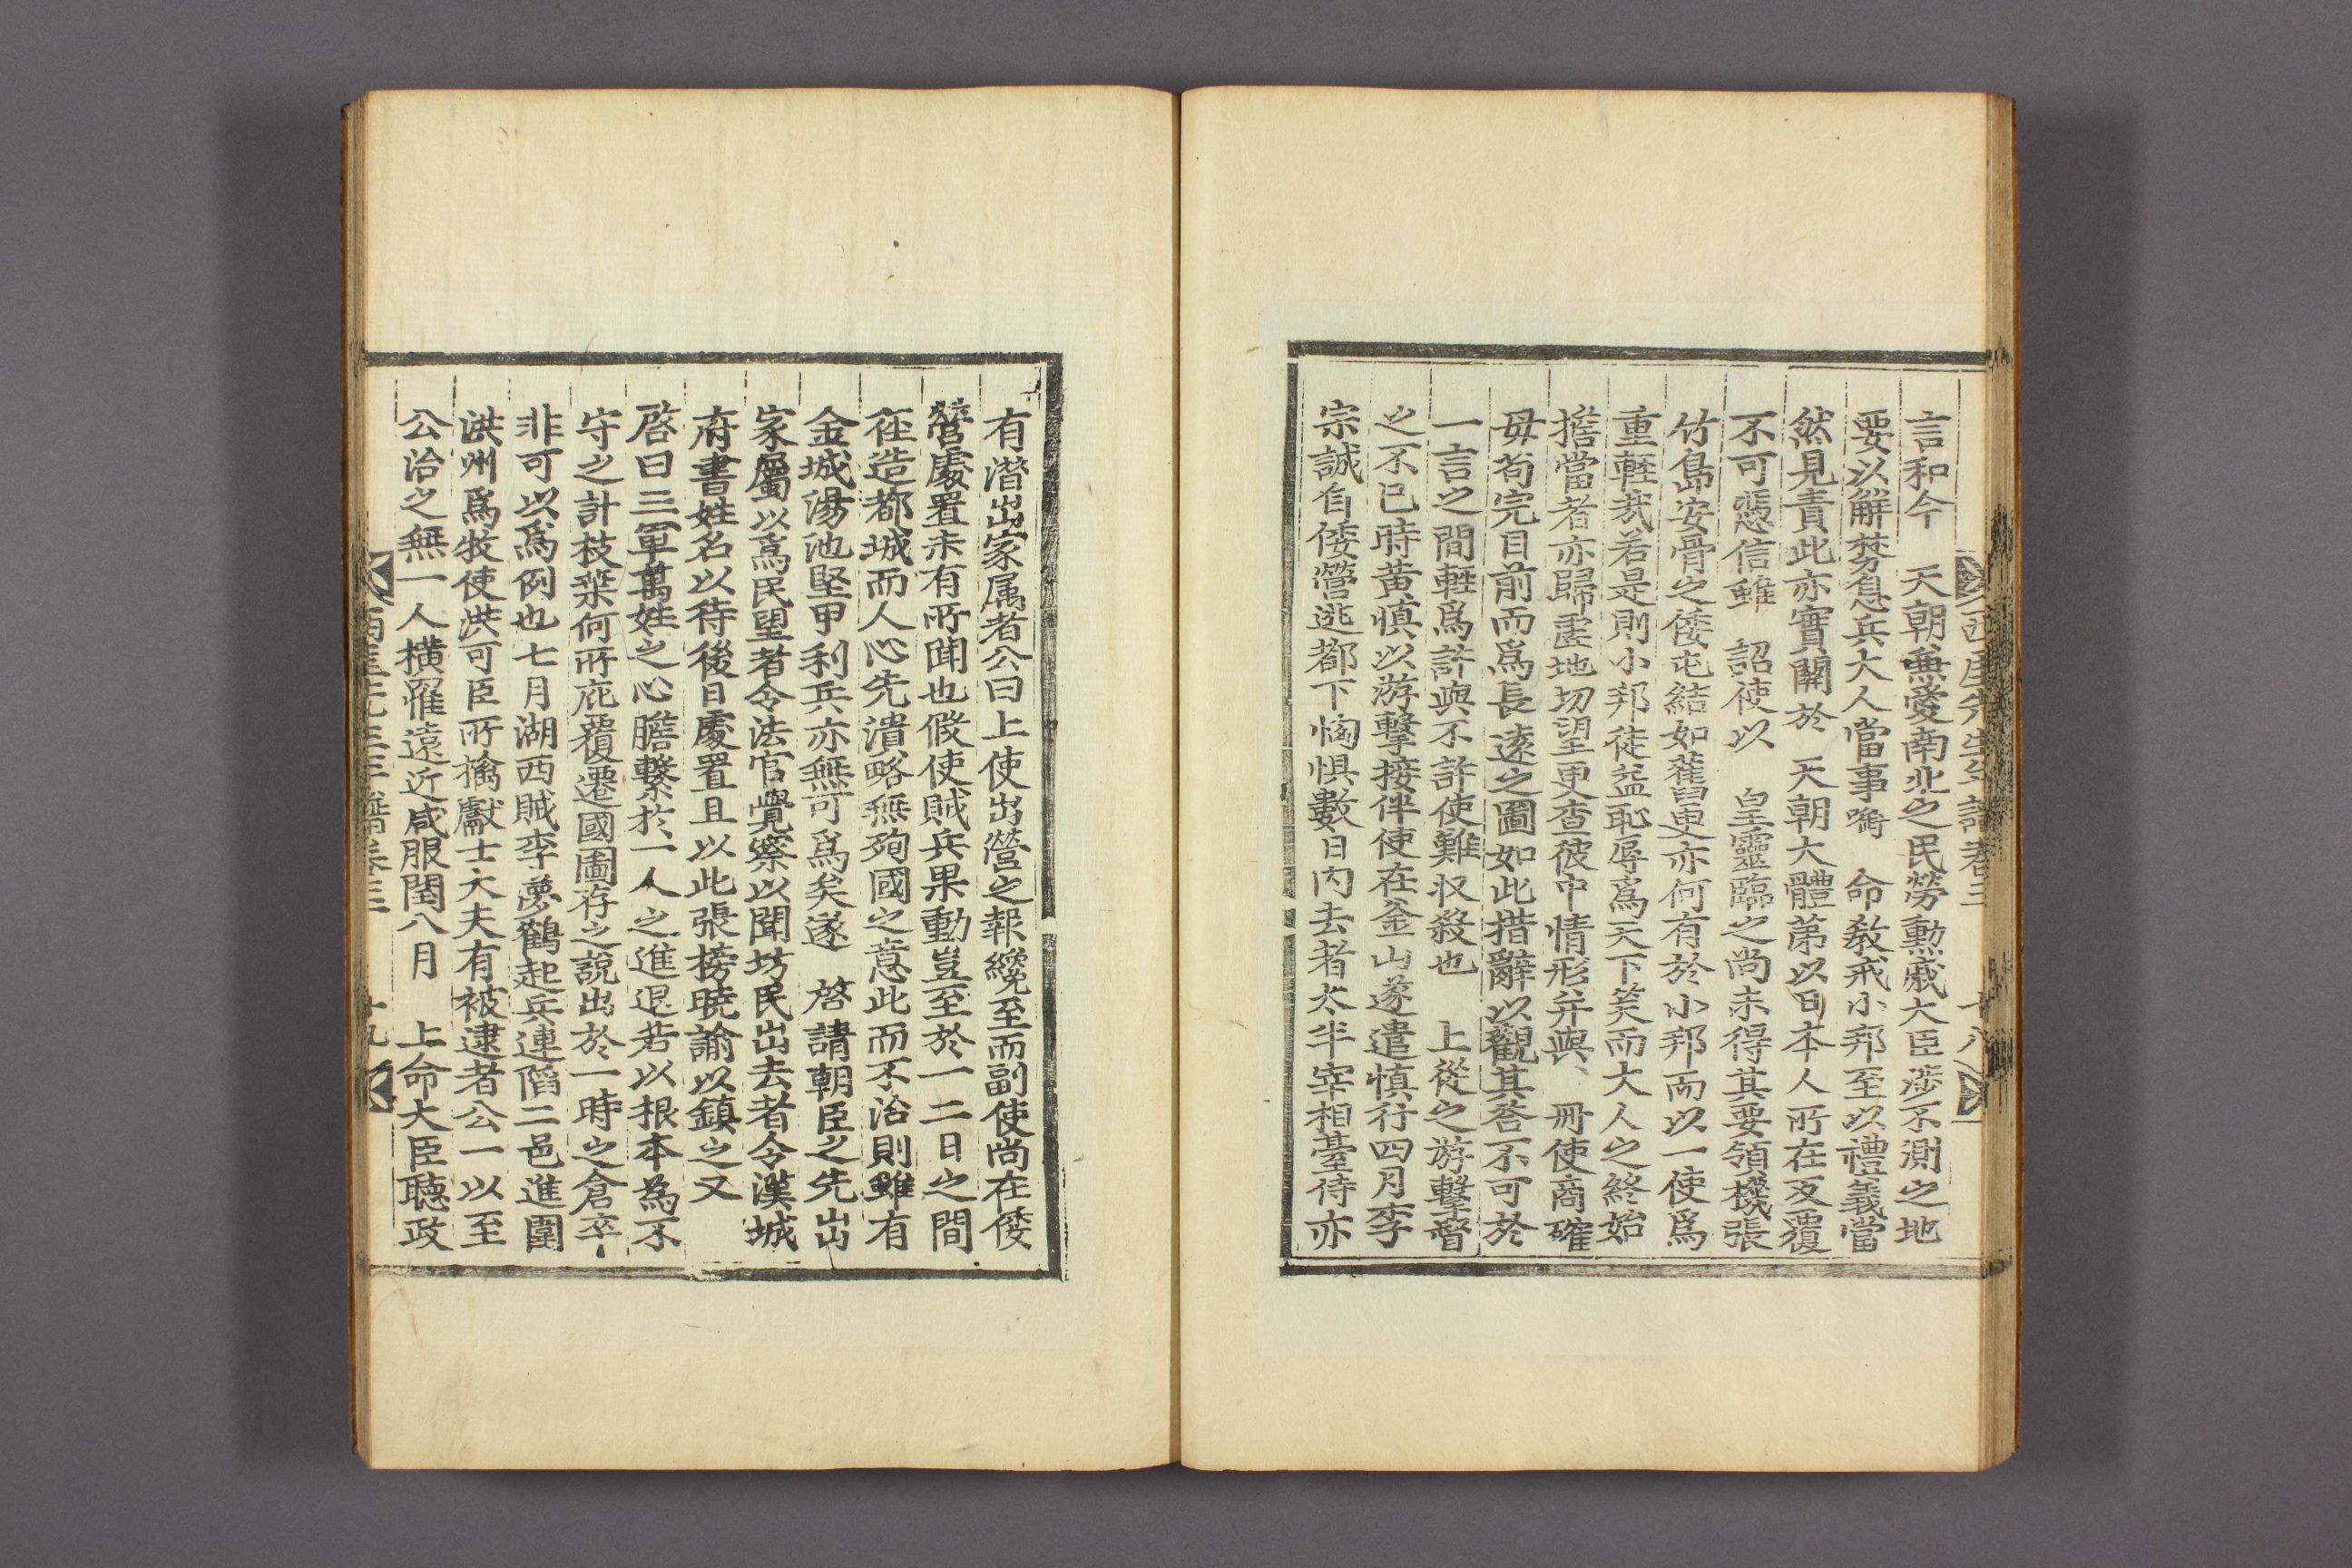 言和今　天朝兼愛南北之民勞勳戚大臣涉不測之地
要以解焚息兵大人當事喻　命教戒小邦至以禮義當
然見責此亦實關於　天朝大體第以日本人所在反覆
不可憑信雖　詔使以　皇靈臨之尚未得其要領機張
竹島安骨之倭屯結如舊更亦何有於小邦而以一使爲
重輕哉若是則小邦徒益恥辱爲天下笑而大人之終始
擔當者亦歸虛地切望更查彼中情形幷與　冊使商確
毋苟完目前而爲長遠之圖如此措辭以觀其答不可於
一言之間輕爲許與不許使難收殺也　上從之游擊督
之不已時黃愼以游擊接伴使在釜山遂遣愼行四月李
宗誠自倭營逃都下恟惧數日內去者太半宰相臺侍亦
西厓先生年譜卷三　十八
有潛出家属者公曰上使出營之報纔至而副使尚在倭
營處置未有所聞也假使賊兵果動豈至於一二日之間
徑造都城而人心先潰略無殉國之意此而不治則雖有
金城湯池堅甲利兵亦無可爲矣遂　啓請朝臣之先出
家屬以爲民望者令法官覺察以聞坊民出去者令漢城
府書姓名以待後日處置且以此張榜曉諭以鎮之又
啓曰三軍萬姓之心膽繫於一人之進退若以根本為不
守之計枝葉何所庇覆遷國圖存之說出於一時之倉卒
非可以爲例也七月湖西賊李夢鶴起兵連陷二邑進圍
洪州爲牧使洪可臣所擒獻士大夫有被逮者公一以至
公治之無一人橫罹遠近咸服閏八月　上命大臣聽政
西厓先生年譜卷三　十九